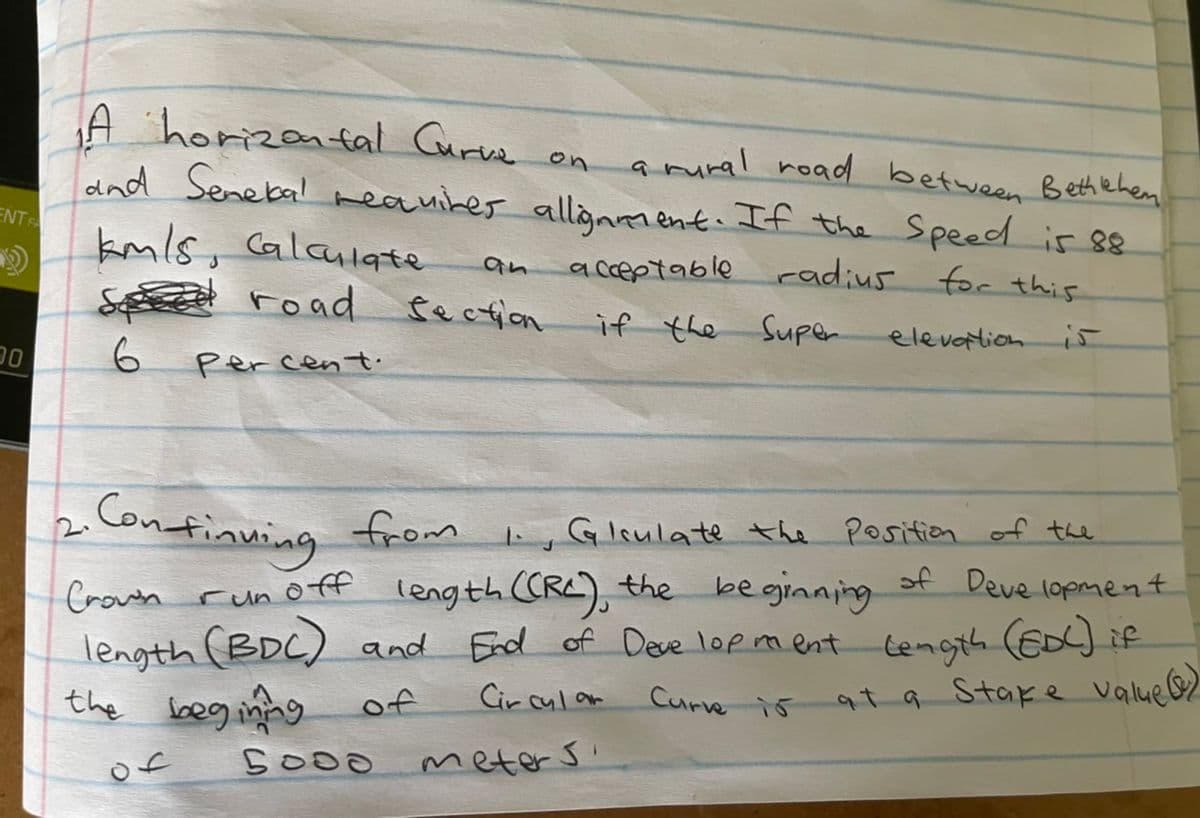 1. A horizontal Curve on a rural road between Bethlehem
and Senekal requires allignment. If the Speed is 88
km/s, Calculate an acceptable radius for this
road section if the Super elevation is
6 percent.
2. Continuing from 1., Calculate the Position of the
Crown runoff length (CRL), the beginning of Development
length (BDL) and End of Development Length (EDL) if
the begining of Circular Curve is at a Stake value(s)
of 5000 meters.
ENT
00